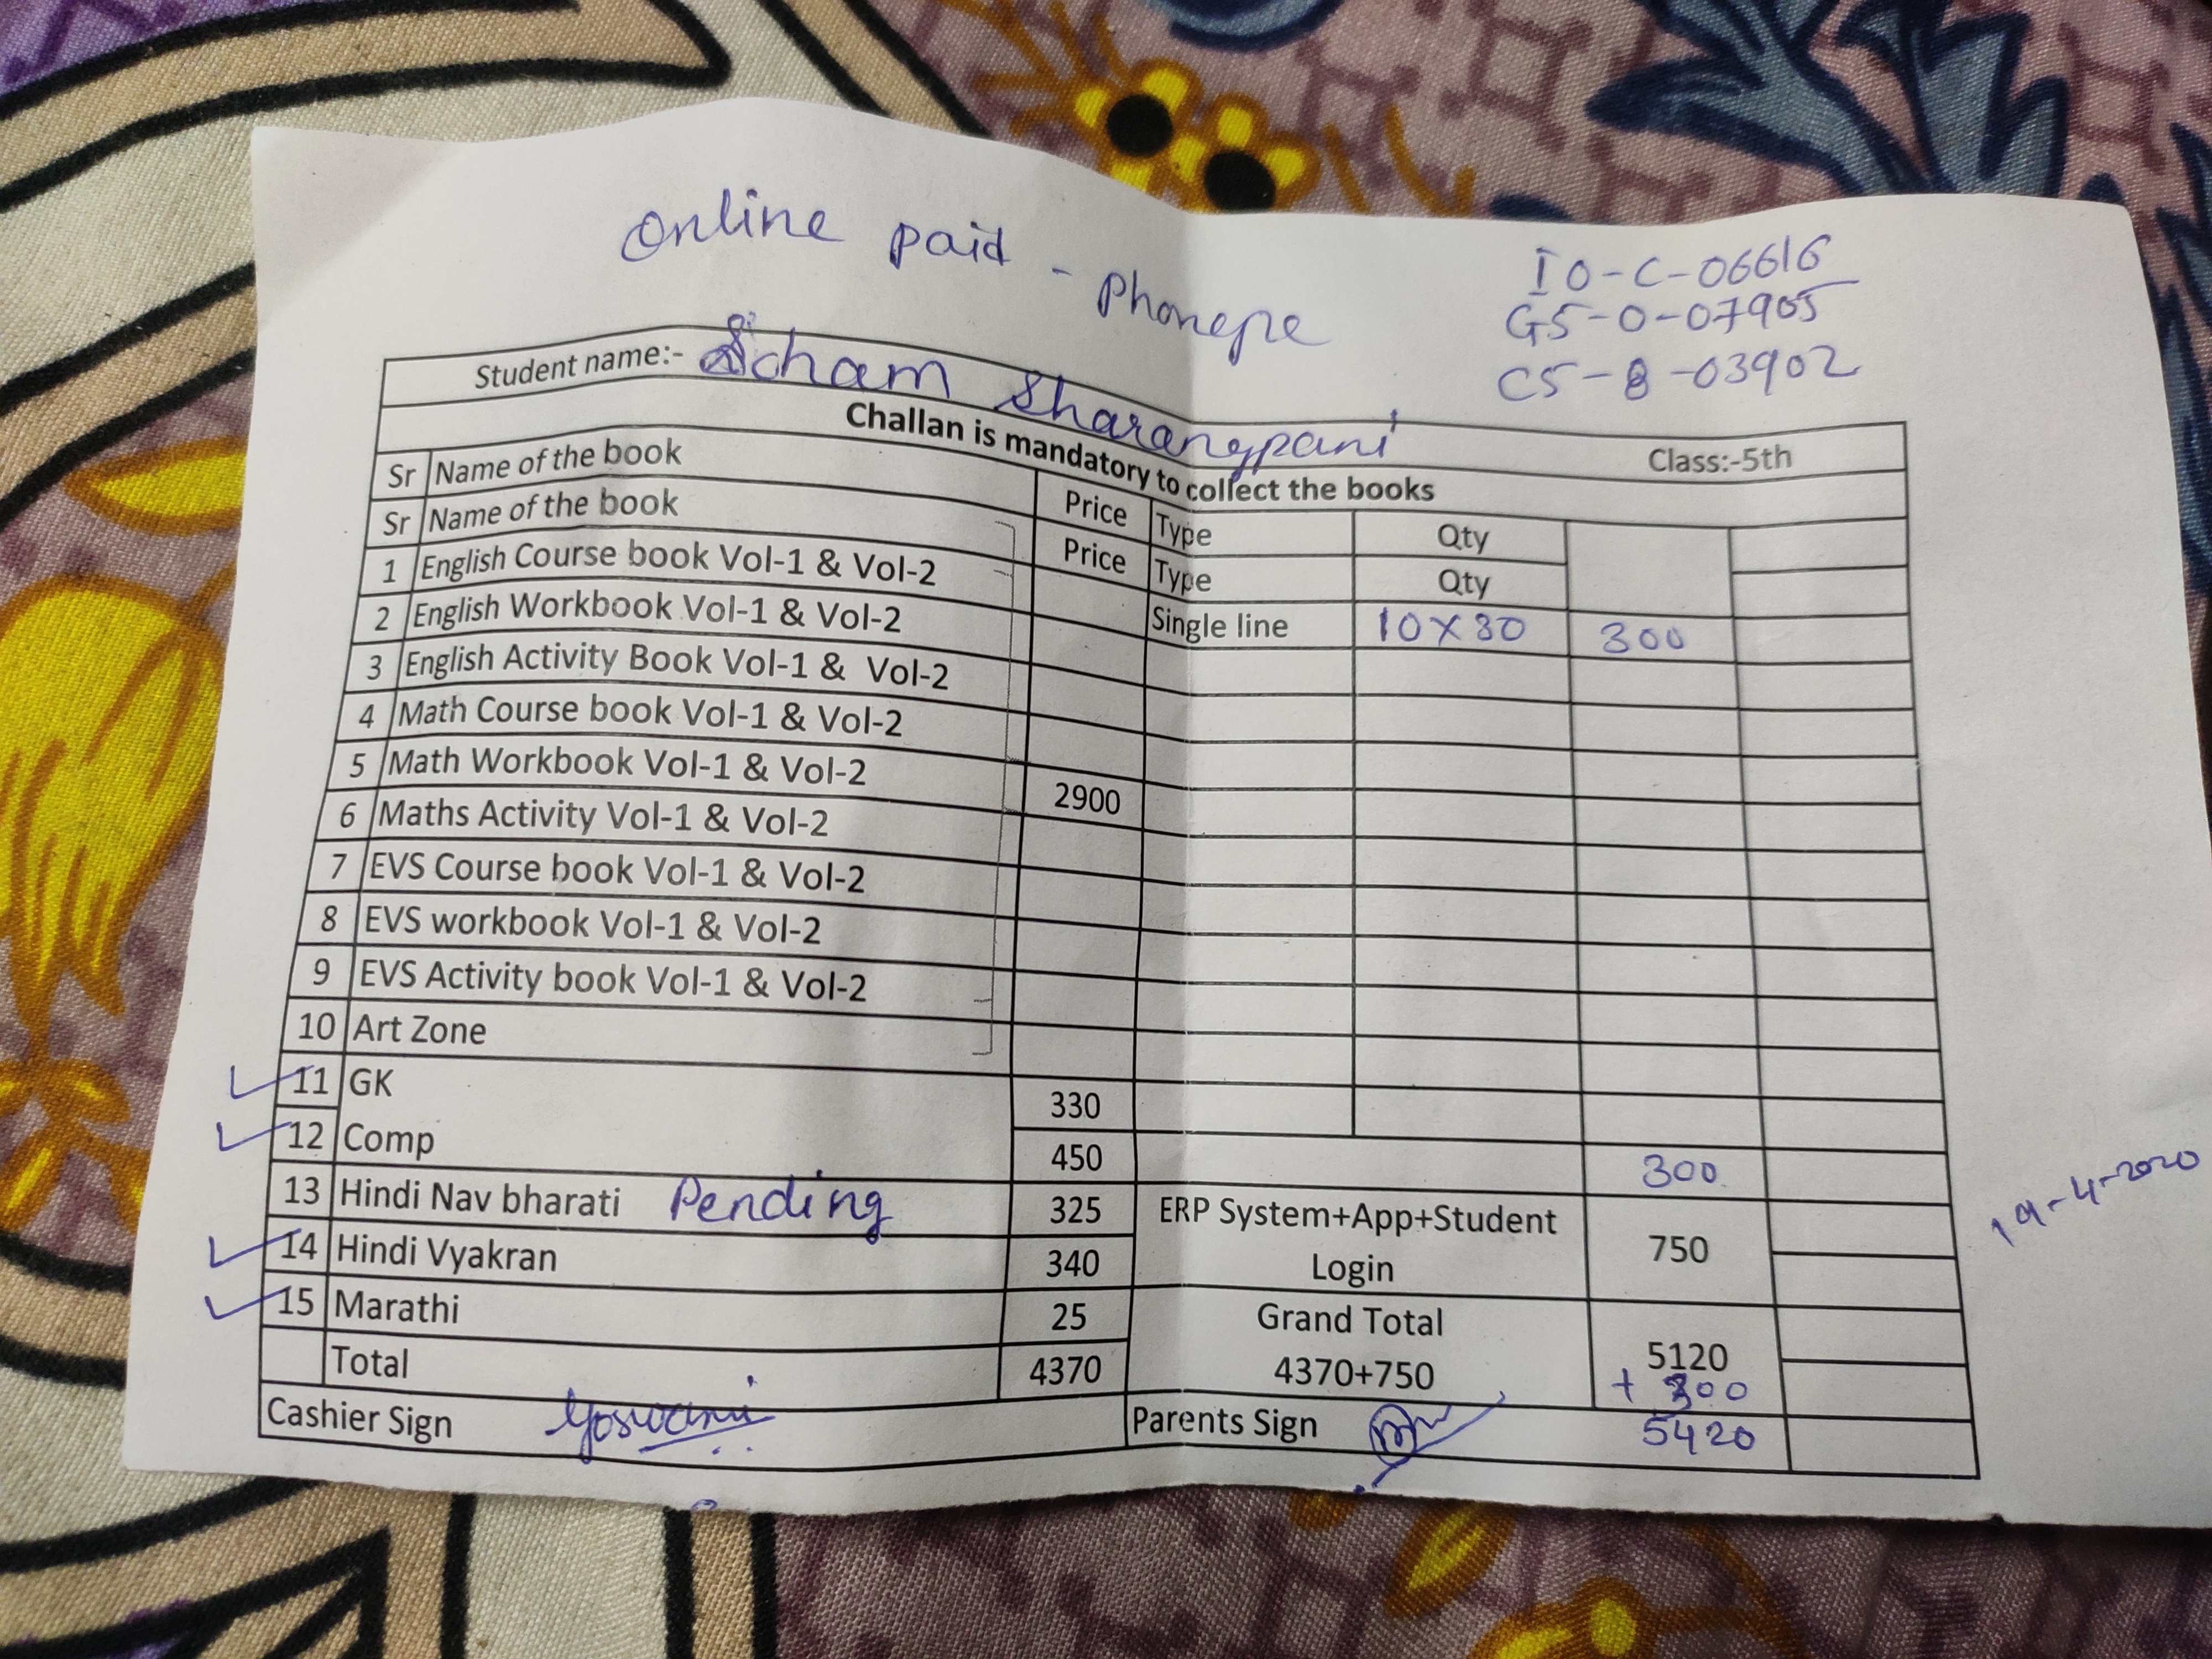 Online paid - Phonepe
IO-C-06616
G5-O-07905
C5-8-03902
Student name:- Soham Sharangpani Class:-5th
Challan is mandatory to collect the books
Sr Name of the book Price Type Qty
Sr Name of the book Price Type Qty
1 English Course book Vol-1 & Vol-2 Single line 10 X 30 300
2 English Workbook Vol-1 & Vol-2
3 English Activity Book Vol-1 & Vol-2
4 Math Course book Vol-1 & Vol-2
5 Math Workbook Vol-1 & Vol-2 2900
6 Maths Activity Vol-1 & Vol-2
7 EVS Course book Vol-1 & Vol-2
8 EVS workbook Vol-1 & Vol-2
9 EVS Activity book Vol-1 & Vol-2
10 Art Zone
11 GK 330
12 Comp 450 300
13 Hindi Nav bharati Pending 325 ERP System+App+Student
14 Hindi Vyakran 340 Login 750
15 Marathi 25 Grand Total
Total 4370 4370+750 5120
+ 300
Cashier Sign Goswami Parents Sign 5420
19-4-2020